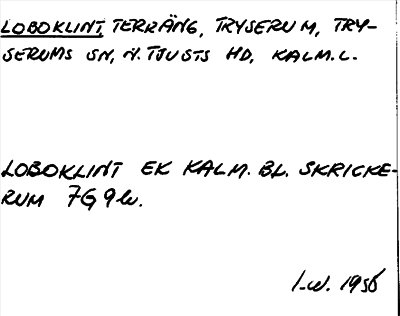 LOBOKLINT, TERRÄNG, TRYSERUM, TRY-
SERUMS SN, N. TJUSTS HD, KALM. L.
LOBOKLINT EK KALM. BL. SKRICKE-
RUM 7G 9b.
I-W. 1956